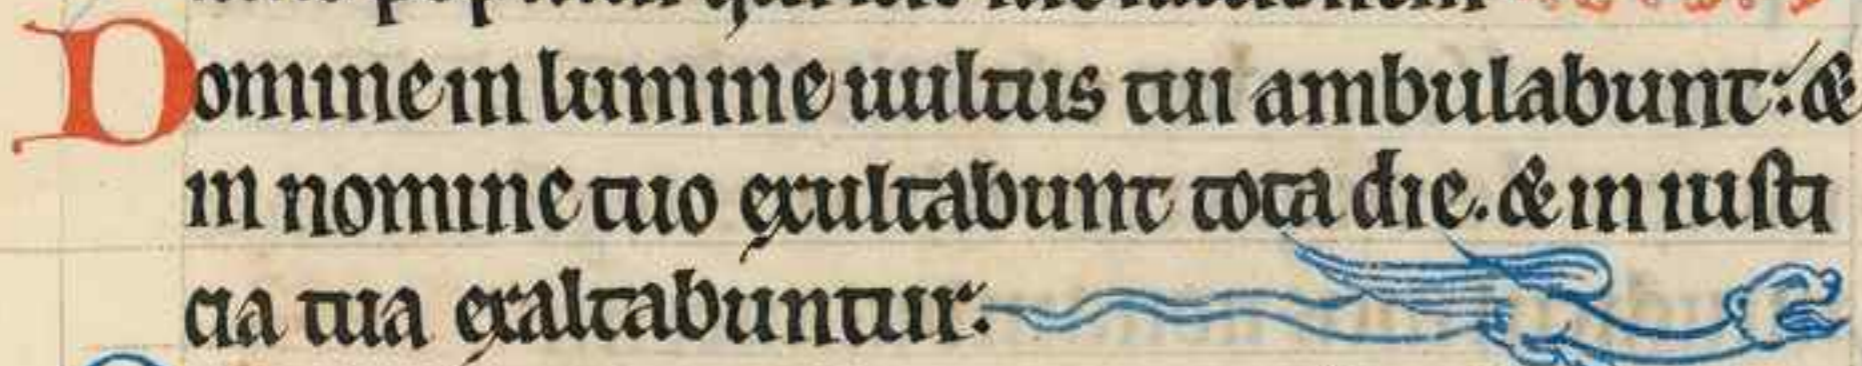 Domine in lumine uultus tui ambulabunt: &
in nomine tuo exultabunt tota die. & in iusti
cia tua exaltabuntur: